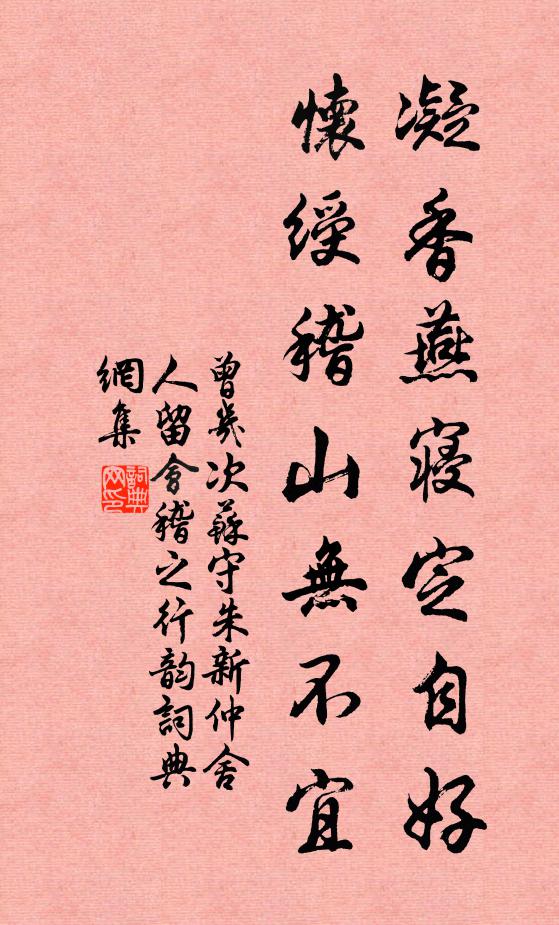 凝香燕寝定自好
懷綬稽山無不宜
曾幾次蘇守朱新仲舍
人留會稽之行韵詞典
網集
詞典
网印